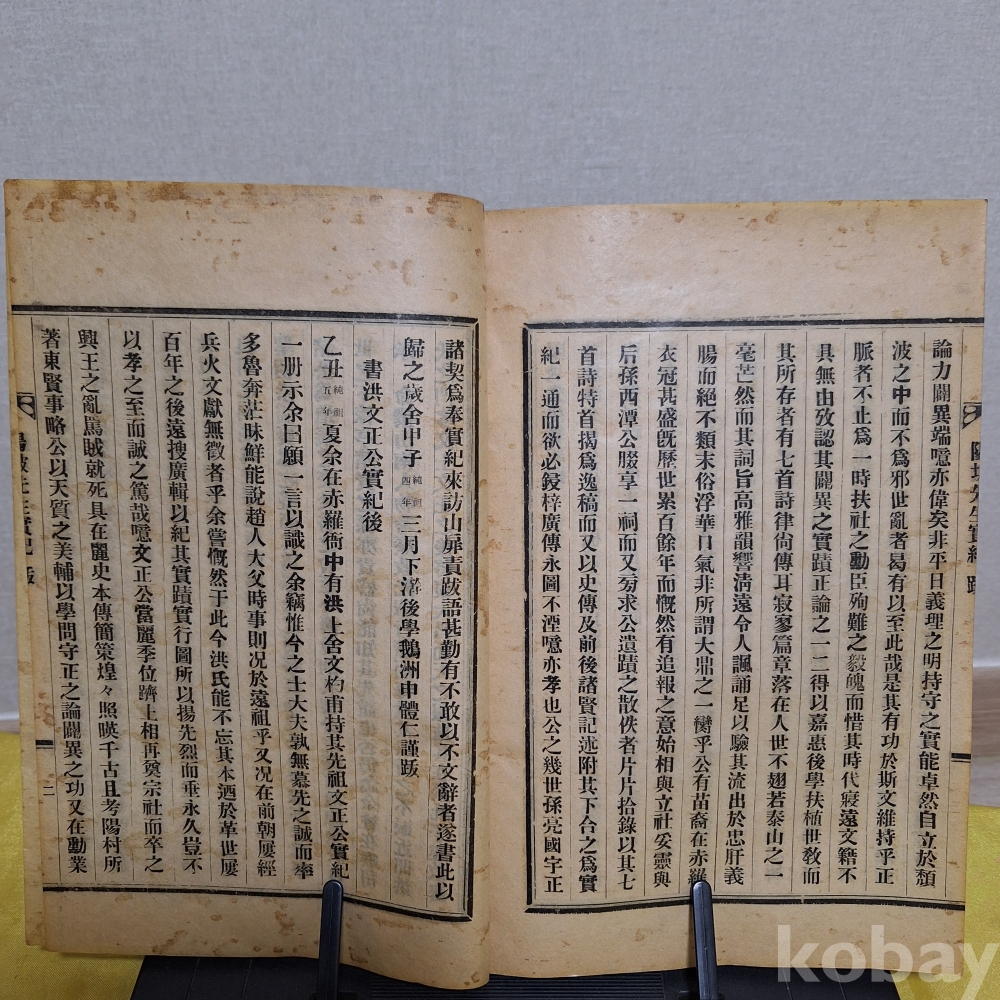 論力闢異端噫亦偉矣非平日義理之明持守之實能卓然自立於頹
波之中而不爲邪世亂者曷有以至此哉是其有功於斯文維持乎正
脈者不止爲一時扶社之勳臣殉難之毅魄而惜其時代寢遠文籍不
具無由攷認其闢異之實蹟正論之一二得以嘉惠後學扶植世敎而
其所存者有七首詩律尙傳耳寂寥篇章落在人世不翅若泰山之一
毫芒然而其詞旨高雅韻響淸遠令人諷誦足以驗其流出於忠肝義
腸而絕不類末俗浮華口氣非所謂大鼎之一臠乎公有苗裔在赤羅
衣冠甚盛旣歷世累百餘年而慨然有追報之意始相與立社妥靈與
后孫西潭公腏享一祠而又旁求公遺蹟之散佚者片片拾錄以其七
首詩特首揭爲逸稿而又以史傳及前後諸賢記述附其下合之爲實
紀一通而欲必鋟梓廣傳永圖不湮噫亦孝也公之幾世孫亮國宇正
陽坡先生實紀 跋
諸契爲奉實紀來訪山扉責跋語甚勤有不敢以不文辭者遂書此以
歸之歲舍甲子純祖四年三月下澣後學鵝洲申體仁謹跋
書洪文正公實紀後
乙丑純祖五年夏余在赤羅衙中有洪上舍文杓甫持其先祖文正公實紀
一册示余曰願一言以識之余竊惟今之士大夫孰無慕先之誠而率
多魯奔茫昧鮮能說趙人大父時事則况於遠祖乎又况在前朝屢經
兵火文獻無徵者乎余嘗慨然于此今洪氏能不忘其本酒於革世屢
百年之後遠搜廣輯以紀其實蹟實行圖所以揚先烈而垂永久豈不
以孝之至而誠之篤哉噫文正公當麗季位躋上相再奠宗社而卒之
興王之亂罵賊就死具在麗史本傳簡策煌々照暎千古且考陽村所
著東賢事略公以天質之美輔以學問守正之論闢異之功又在勳業
陽坡先生實紀 跋
二
kobay